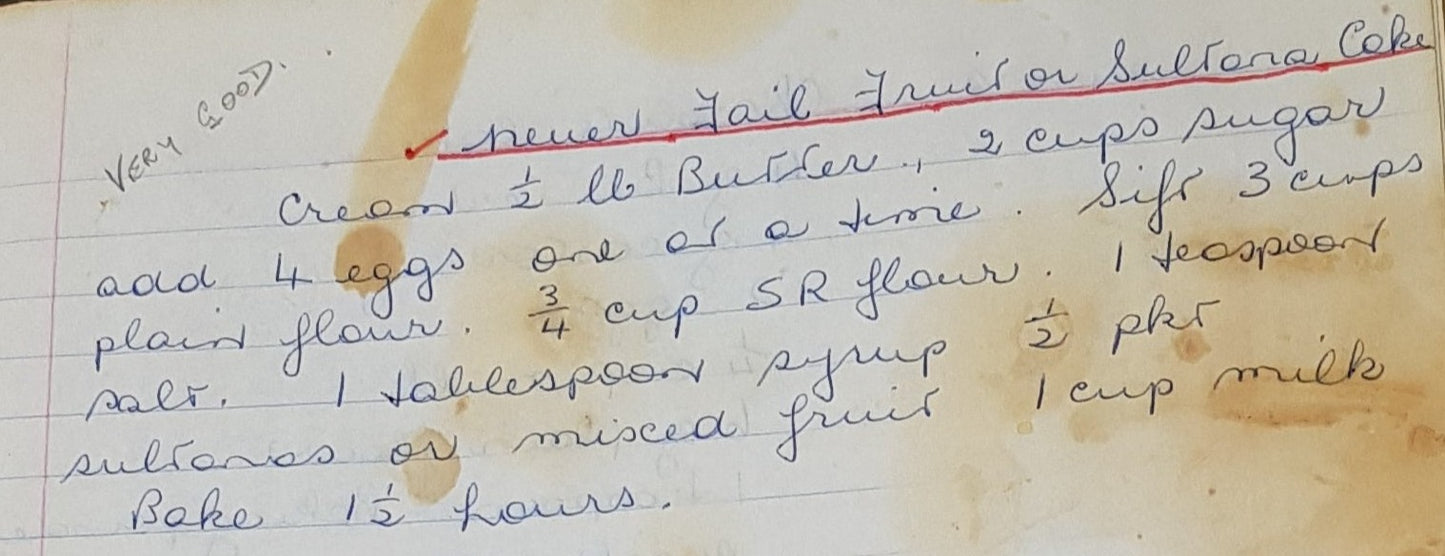 VERY GOOD.
✓ never Fail Fruit or Sultana Cake
Cream 1/2 lb Butter, 2 cups sugar
add 4 eggs one at a time. Sift 3 cups
plain flour. 3/4 cup SR flour. 1 teaspoon
salt. 1 tablespoon syrup 1/2 pkt
sultanas or mixed fruit 1 cup milk
Bake 1 1/2 hours.